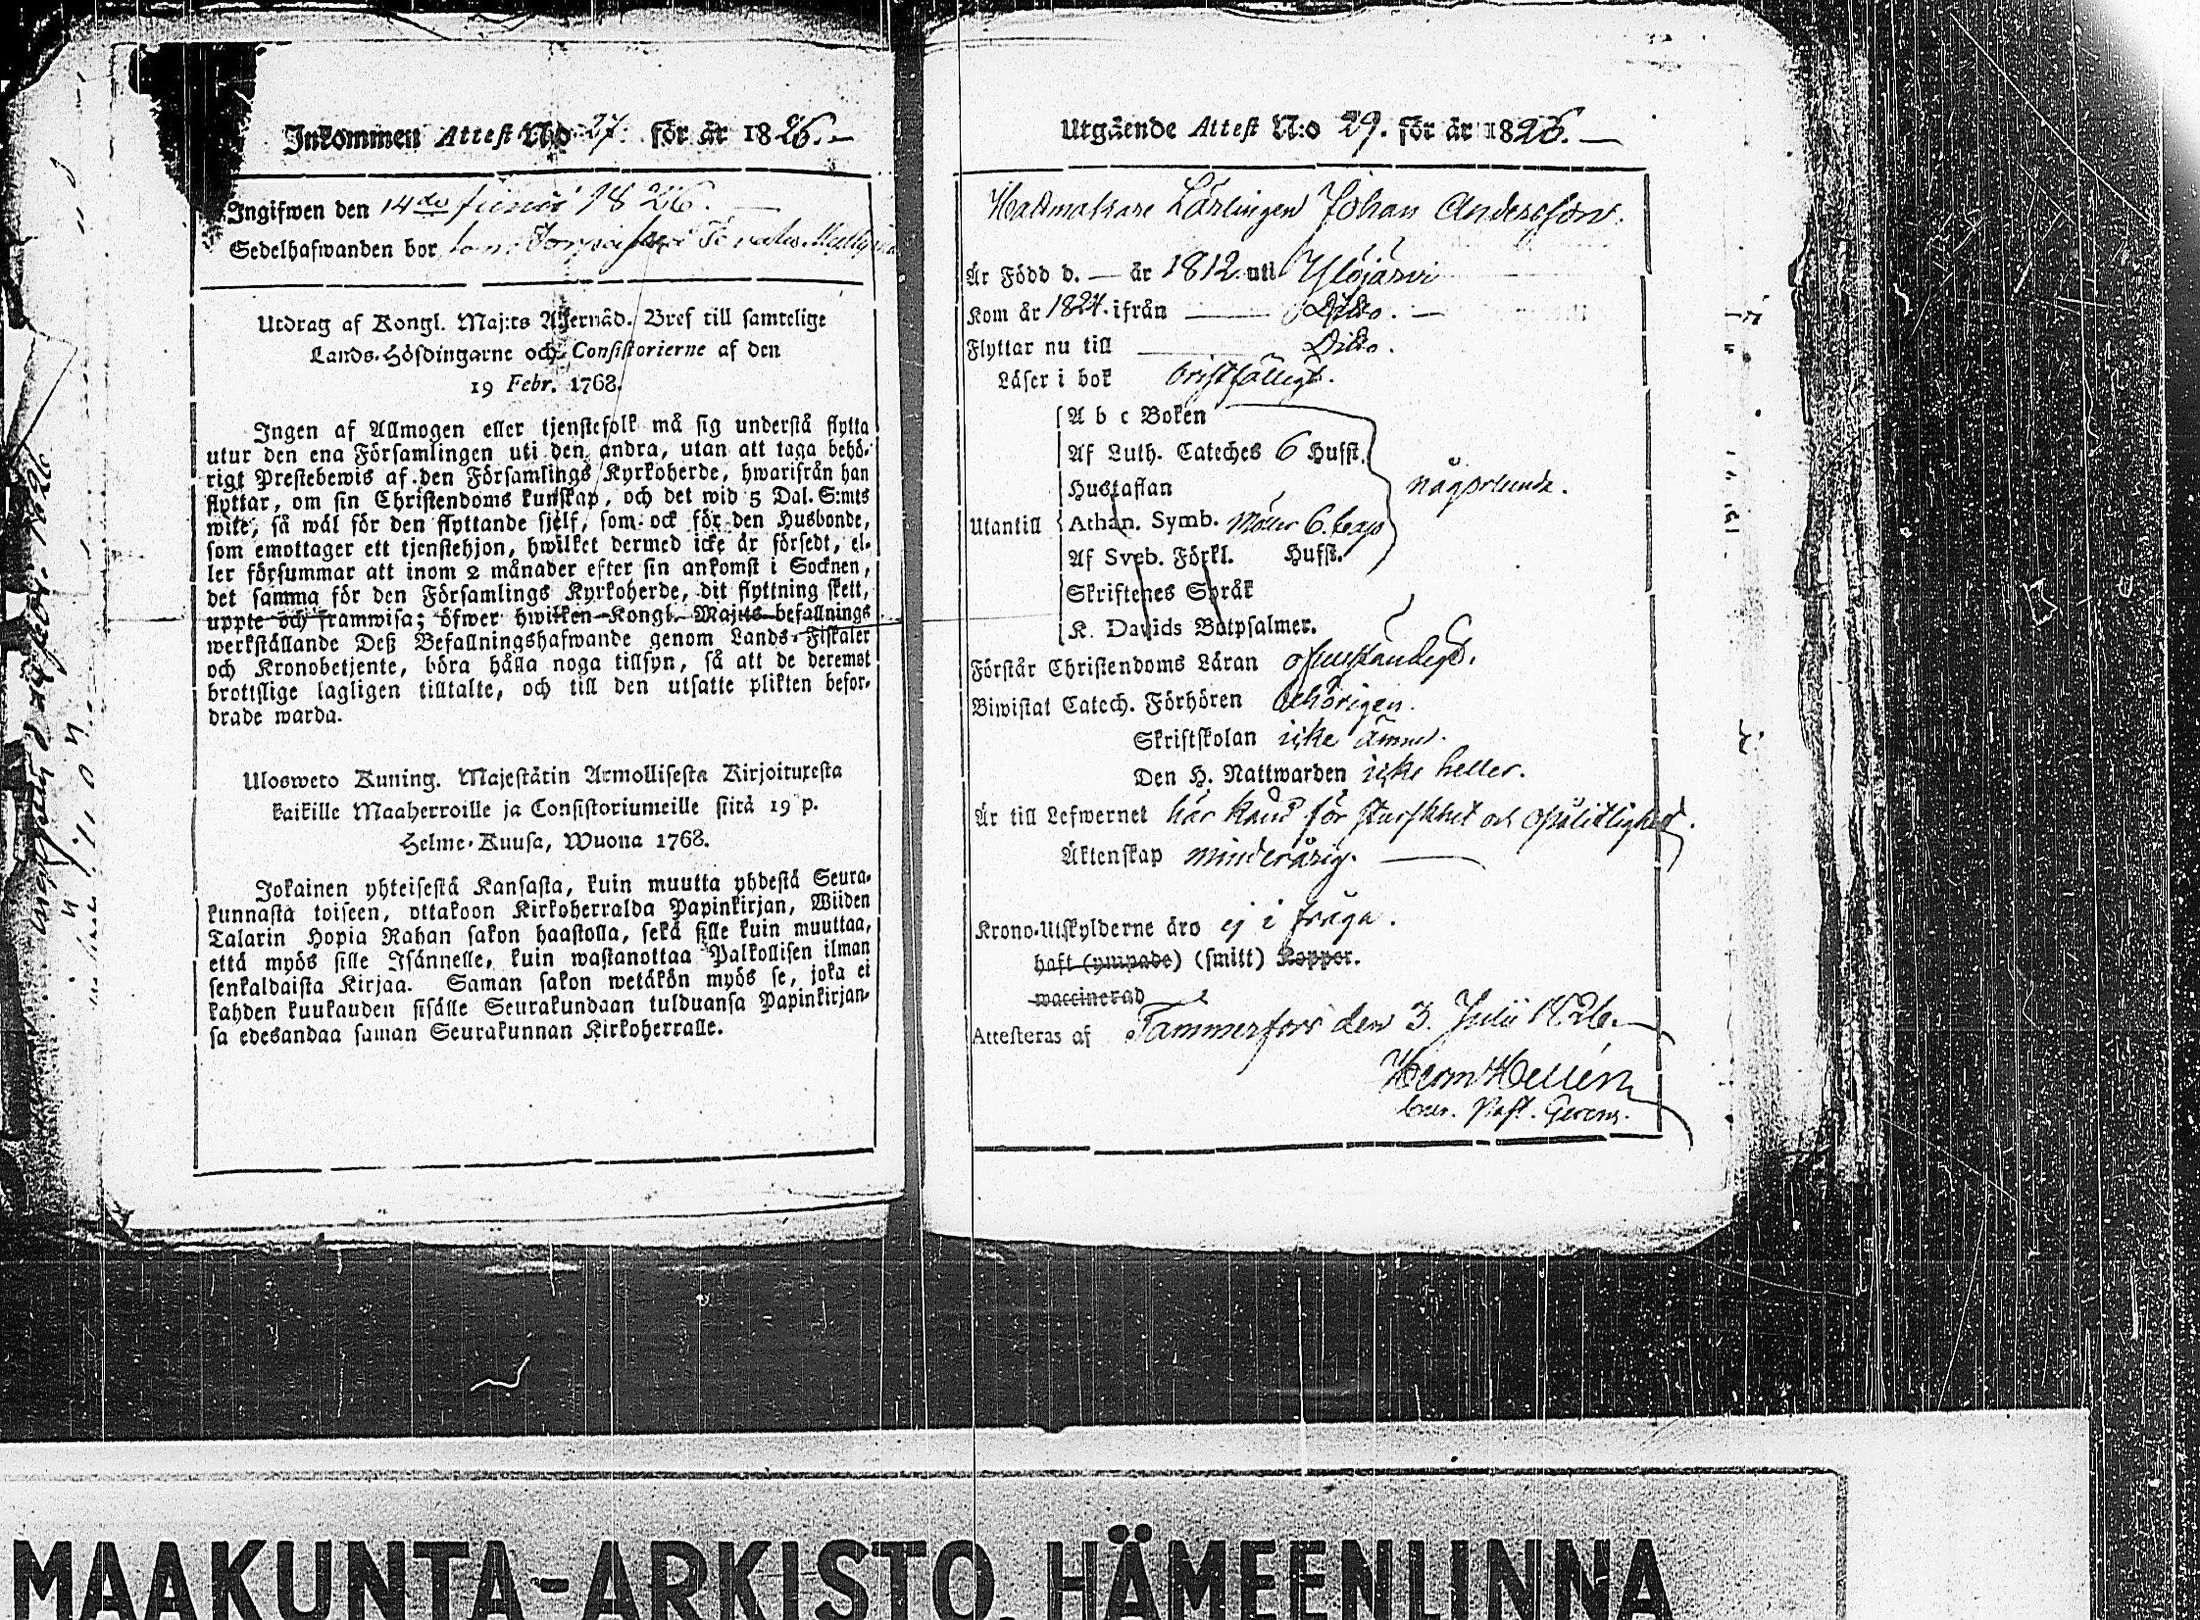 Inkommen Attest N:o 27. för år 1826.
Ingifwen den 14de Junii 1826.
Sedelhafwanden bor
Utdrag af Kongl. Maj:ts Allernåd. Bref till samtelige
Lands-Höfdingarne och Consistorierne af den
19 Febr. 1768.
Ingen af Allmogen eller tjenstefolk må sig understå flytta
utur den ena Församlingen uti den andra, utan att taga behö-
rigt Prestebewis af den Församlings Kyrkoherde, hwarifrån han
flyttar, om sin Christendoms kunskap, och det wid 5 Dal. S:mts
wite, så wäl för den flyttande sjelf, som ock för den Husbonde,
som emottager ett tjenstehjon, hwilket dermed icke är försedt, el-
ler försummar att inom 2 månader efter sin ankomst i Socknen,
det samma för den Församlings Kyrkoherde, dit flyttning skett,
uppte och framwisa; öfwer hwilken Kongl. Maj:ts befallnings
werkställande Deß Befallningshafwande genom Lands-Fiskaler
och Kronobetjente, böra hålla noga tillsyn, så att de deremot
brottslige lagligen tilltalte, och till den utsatte plikten befor-
drade warda.
Ulosweto Kuning. Majestätin Armollisesta Kirjoituxesta
kaikille Maaherroille ja Consistoriumeille siitä 19 p.
Helme-Kuusa, Wuona 1768.
Jokainen yhteisestä Kansasta, kuin muutta yhdestä Seura-
kunnasta toiseen, ottakoon Kirkoherralda Papinkirjan, Wiiden
Talarin Hopia Rahan sakon haastolla, sekä sille kuin muuttaa,
että myös sille Isännelle, kuin wastanottaa Palkollisen ilman
senkaldaista Kirjaa. Saman sakon wetäkön myös se, joka ei
kahden kuukauden sisälle Seurakundaan tulduansa Papinkirjan-
sa edesandaa saman Seurakunnan Kirkoherralle.
Utgående Attest N:o 29. för år 1826.
Hattmakare Lärlingen Johan Andersson.
Är Född d. — år 1812 uti Ylöjärvi
Kom år 1824. ifrån Ditto.
Flyttar nu till Ditto.
Läser i bok bristfälligt.
A b c Boken
Af Luth. Cateches 6 Hufst.
Hustaflan någorlunda.
Utantill Athan. Symb.
Af Sveb. Förkl. Hufst.
Skriftenes Språk
K. Davids Botpsalmer.
Förstår Christendoms Läran ofullständigt.
Biwistat Catech. Förhören behörigen.
Skriftskolan icke ännu.
Den H. Nattwarden icke heller.
Är till Lefwernet här känd för sturskhet och opålitlighet.
Äktenskap minderårig.
Krono-Utskylderne äro ej i fråga.
haft (ympade) (smitt) Koppor.
waccinerad
Attesteras af Tammerfors den 3. Julii 1826.
Herm Hellén
Past. Gerens.
MAAKUNTA-ARKISTO, HÄMEENLINNA